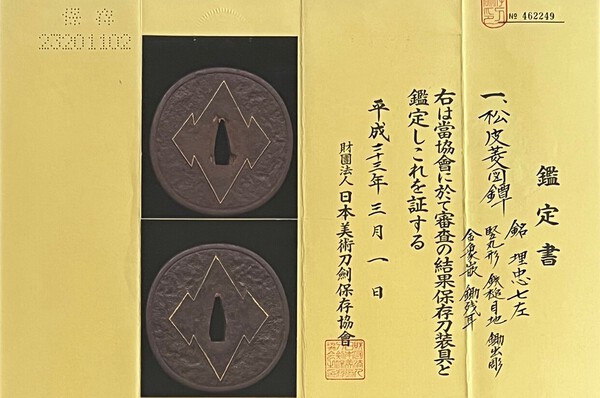 № 462249
保存
23201102
鑑定書
一、松皮菱図鐔
銘 埋忠七左
竪丸形 鉄槌目地 鋤出彫
金象嵌 鋤残耳
右は當協會に於て審査の結果保存刀装具と
鑑定しこれを証する
平成二十三年三月一日
財團法人 日本美術刀劍保存協會